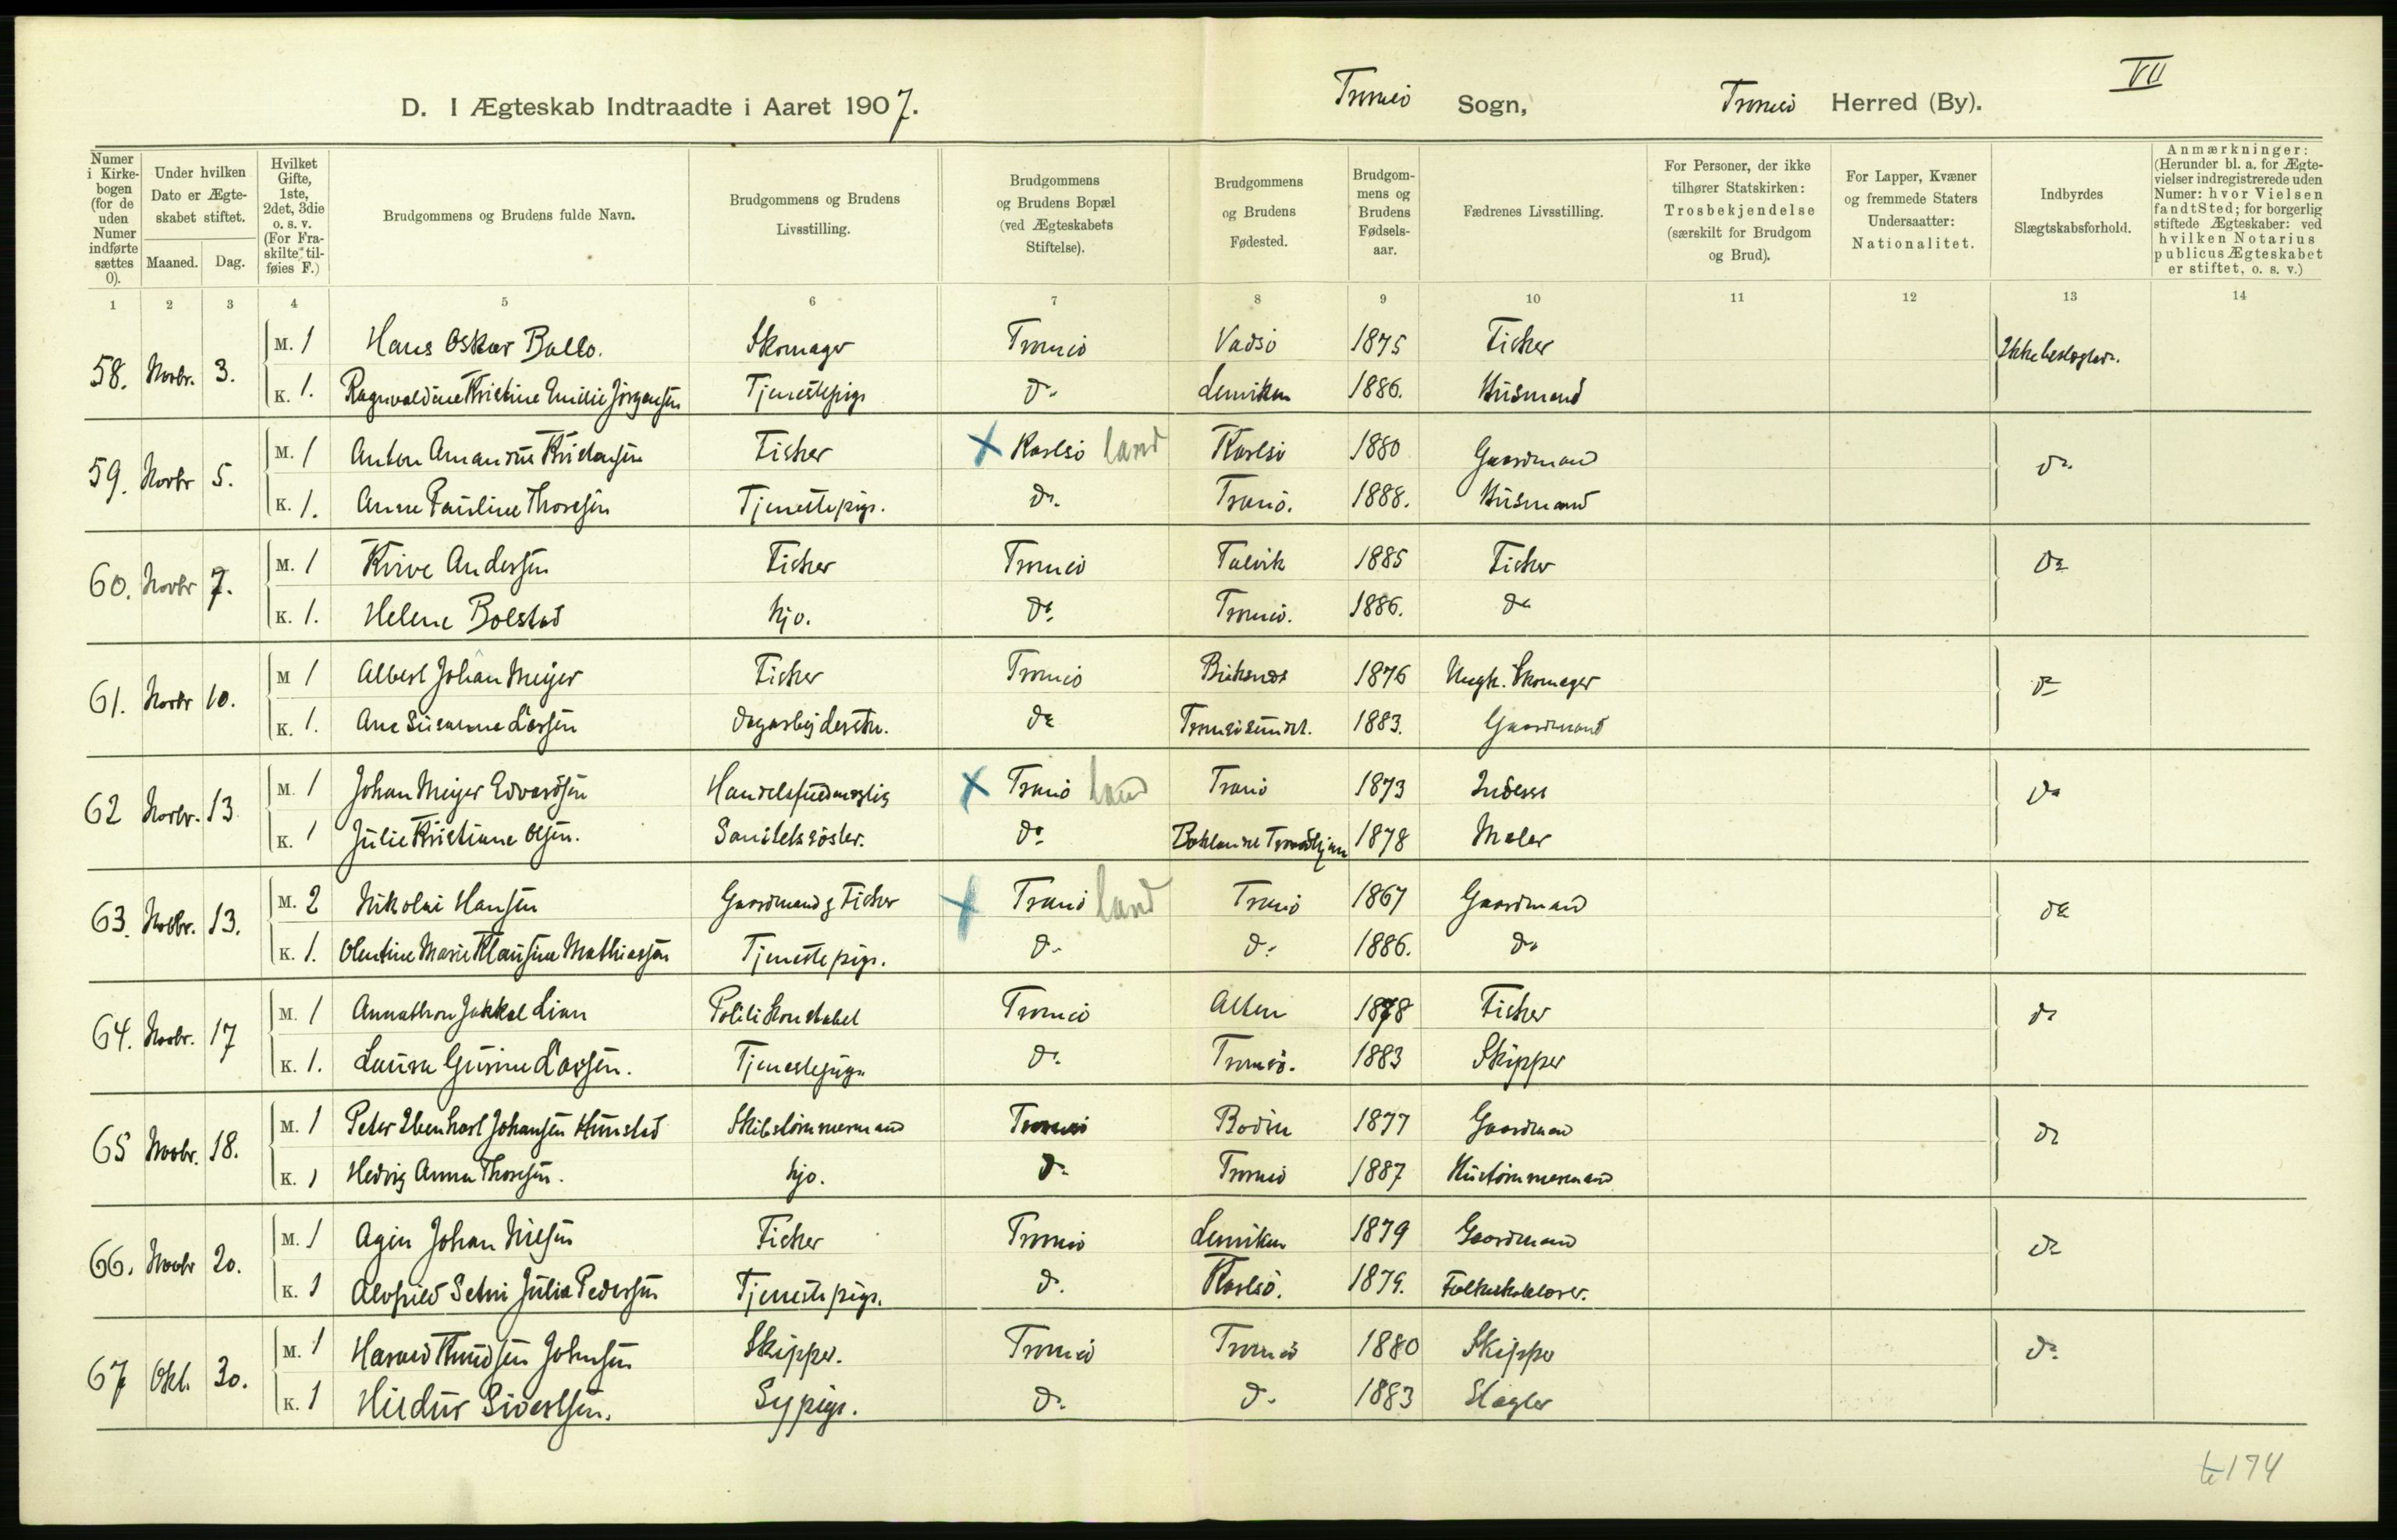 VII
D. I Ægteskab Indtraadte i Aaret 1907. Tromsö Sogn, Tromsö Herred (By).
Numer i Kirkebogen (for de uden Numer indførte sættes 0).
Under hvilken Dato er Ægteskabet stiftet.
Maaned. Dag.
Hvilket Gifte, 1ste, 2det, 3die o. s. v. (For Fraskilte tilføies F.)
Brudgommens og Brudens fulde Navn.
Brudgommens og Brudens Livsstilling.
Brudgommens og Brudens Bopæl (ved Ægteskabets Stiftelse).
Brudgommens og Brudens Fødested.
Brudgommens og Brudens Fødselsaar.
Fædrenes Livsstilling.
For Personer, der ikke tilhører Statskirken: Trosbekjendelse (særskilt for Brudgom og Brud).
For Lapper, Kvæner og fremmede Staters Undersaatter: Nationalitet.
Indbyrdes Slægtskabsforhold.
Anmærkninger: (Herunder bl. a. for Ægtevielser indregistrerede uden Numer: hvor Vielsen fandt Sted; for borgerlig stiftede Ægteskaber: ved hvilken Notarius publicus Ægteskabet er stiftet, o. s. v.)
1 2 3 4 5 6 7 8 9 10 11 12 13 14
58. Novbr. 3. M. 1 Hans Oskar Ballo. Skomager Tromsö Vadsö 1875 Fisker Ikke beslægtede.
K. 1. Ragnvaldine Kristine Emilie Jörgensen Tjenestepige do. Lenviken 1886. Husmand
59. Novbr 5. M. 1 Anton Amandus Kristensen Fisker X Karlsö land Karlsö 1880 Gaardmand do.
K. 1. Anne Pauline Thoresen Tjenestepige. do. Tranö. 1888. Husmand
60. Novbr 7. M. 1 Andersen Fisker Tromsö Talvik 1885 Fisker do
K. 1. Helene Bolstad hjo. do. Tromsö. 1886. do
61. Novbr 10. M 1 Albert Johan Meijer Fisker Tromsö 1876 Skomager do
K. 1. Ane Susanne Larsen Dagarbejderske. do Tromsösundet. 1883. Gaardmand
62 Novbr. 13 M. 1 Johan Meijer Edvardsen Handelsfuldmægtig X Tranö land Tranö 1873 do
K. 1 Julie Kristiane Olsen. Sanitetssöster. do. Baklandet Trondhjem 1878 Maler
63. Novbr. 13. M. 2 Nikolai Hansen Gaardmand & Fisker X Tranö land Tranö 1867 Gaardmand do
K. 1. Olentine Marie Klausine Mathiassen Tjenestepige. do. do. 1886. do
64. Novbr. 17 M. 1 Lian Politikonstabel Tromsö Alten 1878 Fisker do
K. 1. Laura Gurine Larsen. Tjenestepige do. Tromsö. 1883 Skipper
65 Novbr. 18. M. 1 Peter Ibenhart Johansen Hunstad Skibstömmermand Tromsö Bodin 1877 Gaardmand do
K. 1 Hedvig Anna Thoresen. hjo. do. Tromsö 1887 Hustömmermand
66. Novbr 20. M. 1 Agin Johan Nilsen Fisker Tromsö Lenviken 1879 Gaardmand do
K. 1 Alvhild Julie Pedersen Tjenestepige. do. Karlsö. 1879. Folkeskolelærer.
67 Okt. 30. M. 1 Harald Knudsen Johnsen Skipper. Tromsö Tromsö 1880 Skipper do.
K. 1 Hildur Sivertsen. Sypige. do. do. 1883 Slagter
174